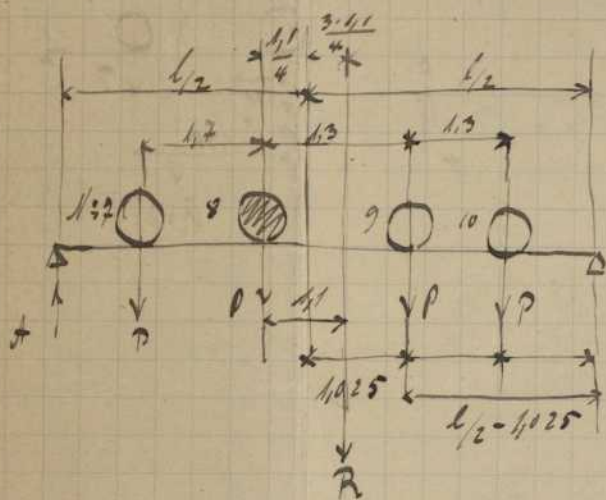 1,1/4 3·1,1/4
l/2 l/2
1,7 1,3 1,3
N:7 8 9 10
A P P 1,1 P P
1,025
l/2-1,025
R